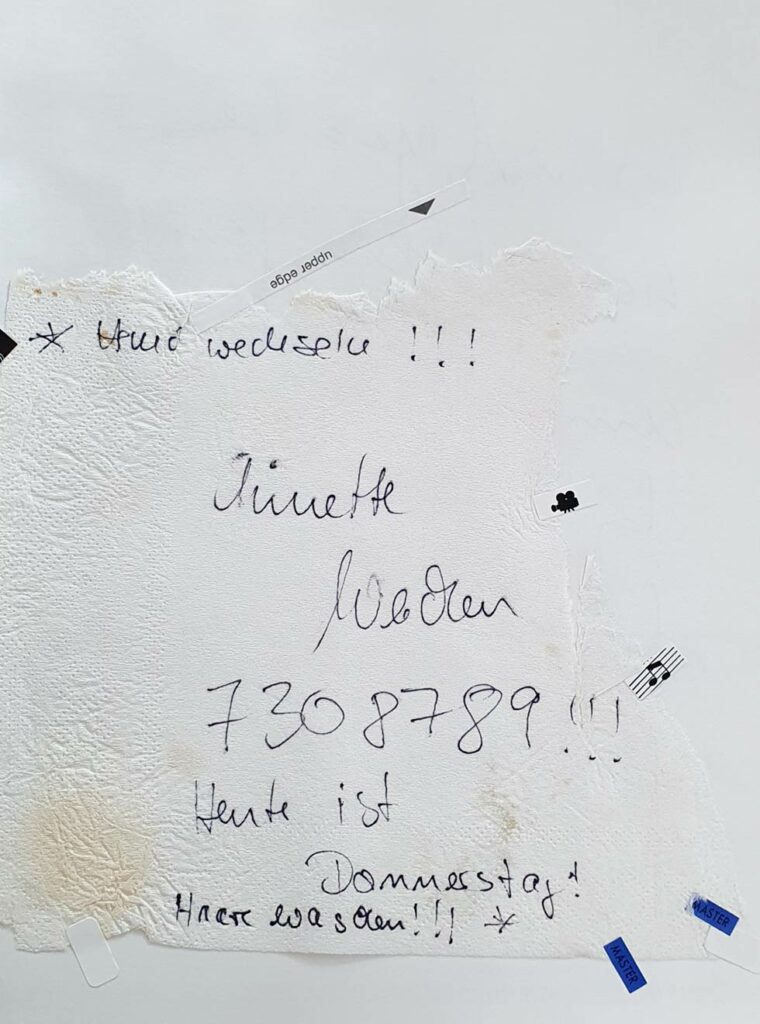 upper edge
* Hemd wechseln !!!
Annette
7308789 !!!
Heute ist
Donnerstag!
Haare waschen!!! *
MASTER
MASTER